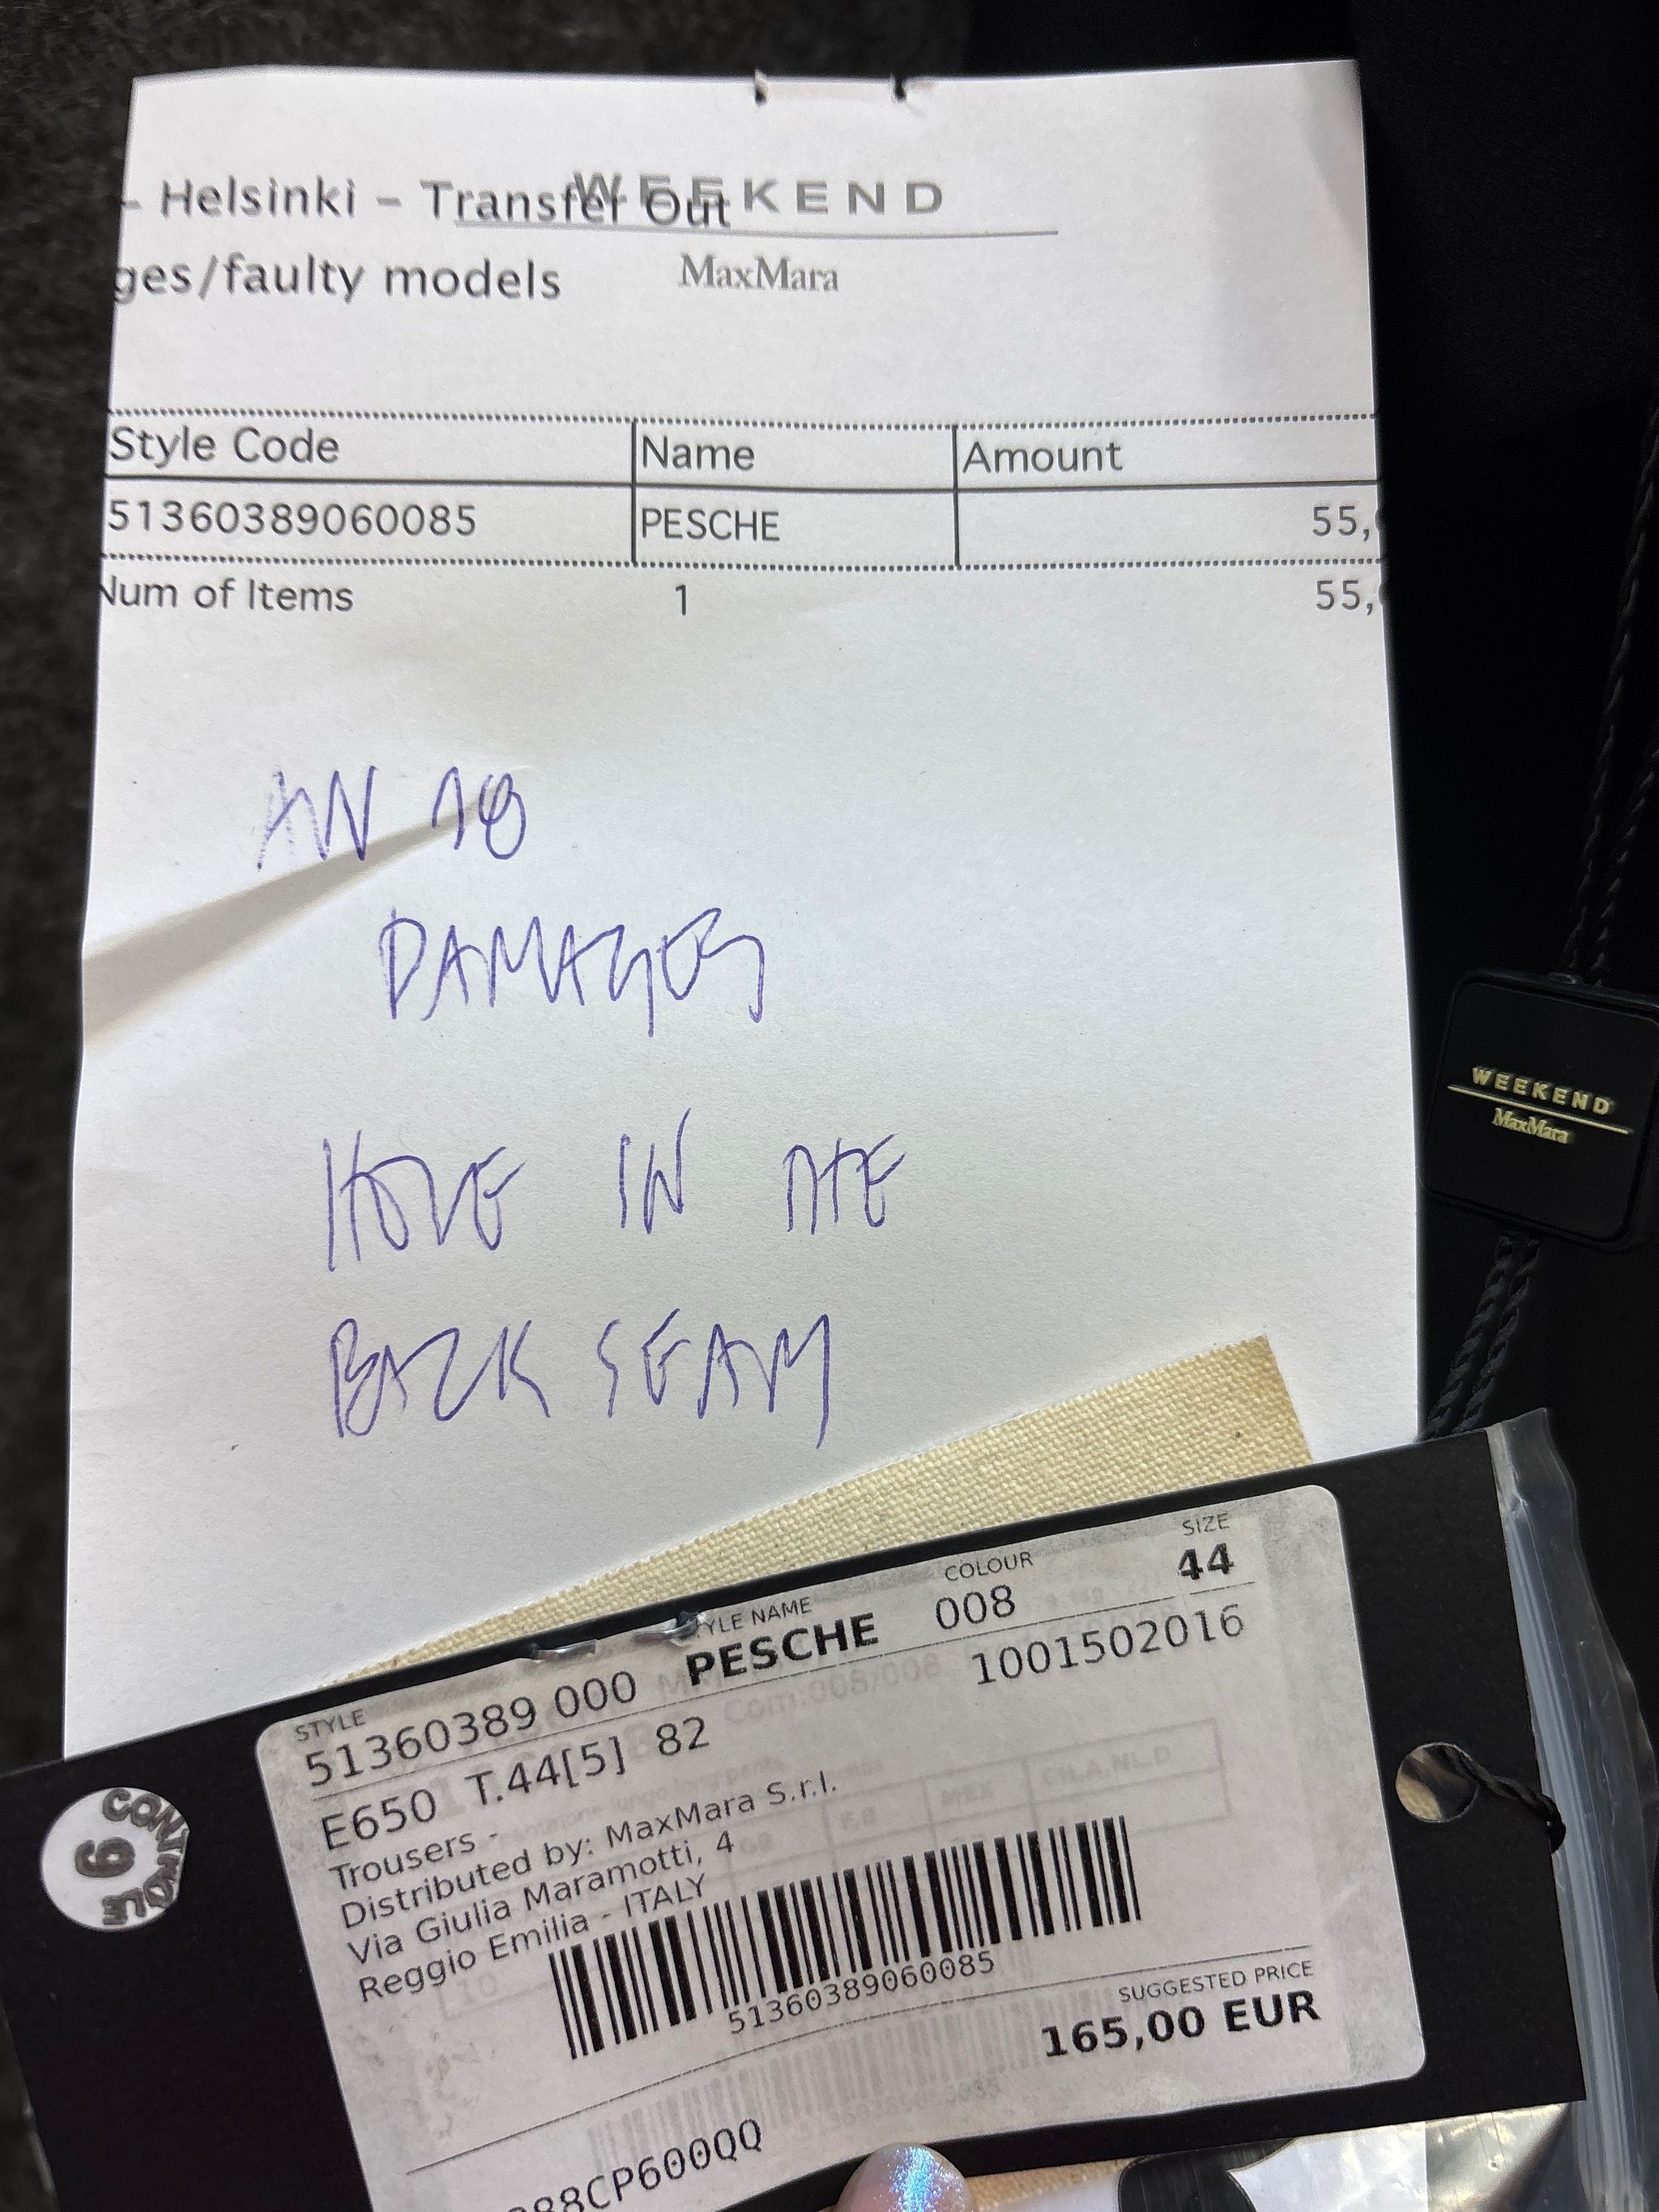 - Helsinki - Transfer Out
WEEKEND
ges/faulty models
MaxMara
Style Code Name Amount
51360389060085 PESCHE 55,
Num of Items 1 55,
AW 18
DAMAGES
HOLE IN THE
BACK SEAM
WEEKEND
MaxMara
STYLE STYLE NAME COLOUR SIZE
51360389 000 PESCHE 008 44
E650 T.44[5] 82 1001502016
Trousers -
Distributed by: MaxMara S.r.l.
Via Giulia Maramotti, 4
Reggio Emilia - ITALY
51360389060085
SUGGESTED PRICE
165,00 EUR
88CP600QQ
CONTROLE
6